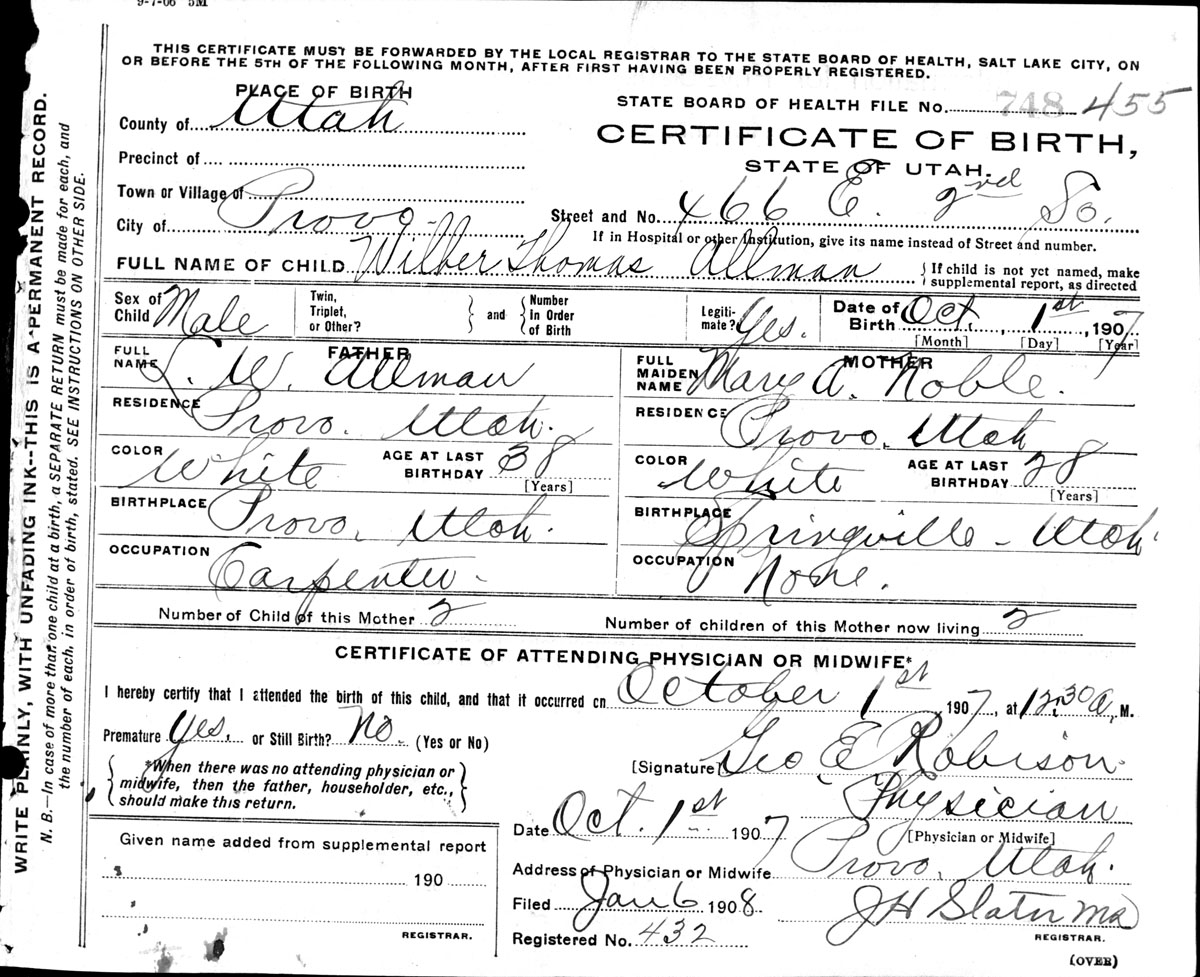 9-7-06 5M
THIS CERTIFICATE MUST BE FORWARDED BY THE LOCAL REGISTRAR TO THE STATE BOARD OF HEALTH, SALT LAKE CITY, ON
OR BEFORE THE 5TH OF THE FOLLOWING MONTH, AFTER FIRST HAVING BEEN PROPERLY REGISTERED.
WRITE PLAINLY, WITH UNFADING INK--THIS IS A PERMANENT RECORD.
N. B.—In case of more than one child at a birth, a SEPARATE RETURN must be made for each, and
the number of each, in order of birth, stated. SEE INSTRUCTIONS ON OTHER SIDE.
PLACE OF BIRTH
STATE BOARD OF HEALTH FILE No. 748 455
County of Utah
CERTIFICATE OF BIRTH,
STATE OF UTAH.
Precinct of
Town or Village of
City of Provo
Street and No. 466 E. 2nd So.
If in Hospital or other Institution, give its name instead of Street and number.
FULL NAME OF CHILD Wilber Thomas Allman { If child is not yet named, make supplemental report, as directed
Sex of Child Male Twin, Triplet, or Other? } and { Number In Order of Birth Legiti-mate? Yes. Date of Birth Oct. 1st, 1907
[Month] [Day] [Year]
FATHER
FULL NAME W. Allman
RESIDENCE Provo. Utah.
COLOR White AGE AT LAST BIRTHDAY 38
[Years]
BIRTHPLACE Provo, Utah.
OCCUPATION Carpenter -
MOTHER
FULL MAIDEN NAME Mary A. Noble.
RESIDENCE Provo, Utah
COLOR White AGE AT LAST BIRTHDAY 28
[Years]
BIRTHPLACE Springville - Utah.
OCCUPATION None.
Number of Child of this Mother 2 Number of children of this Mother now living 2
CERTIFICATE OF ATTENDING PHYSICIAN OR MIDWIFE*
I hereby certify that I attended the birth of this child, and that it occurred on October 1st, 1907, at 12:30 a, M.
Premature Yes. or Still Birth? No. (Yes or No)
{ *When there was no attending physician or
midwife, then the father, householder, etc.,
should make this return. }
[Signature] Geo E Robison.
Physician
[Physician or Midwife]
Date Oct. 1st 1907
Address of Physician or Midwife Provo, Utah.
Filed Jan 6 1908 J H Slater MD
REGISTRAR.
Registered No. 432
Given name added from supplemental report
190
REGISTRAR.
(OVER)